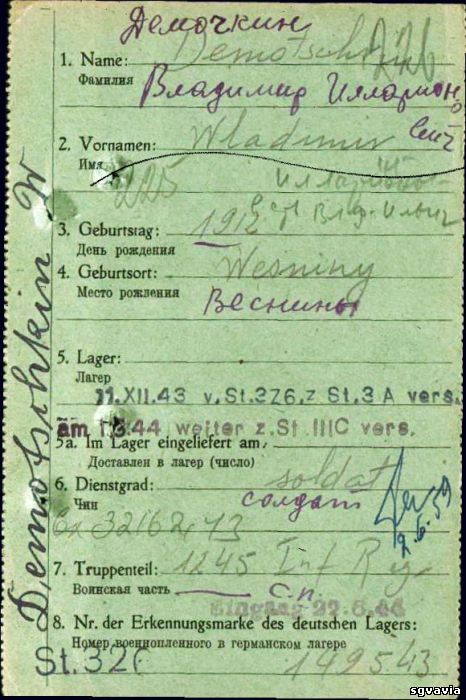 Демочкин
1. Name: Demotschkin
Фамилия
Владимир Илларионо
вич
2. Vornamen: Wladimir
Имя
225
3. Geburtstag: 1912
День рождения
4. Geburtsort: Wesniny
Место рождения Веснины
5. Lager:
Лагерь
11.XII.43 v. St.326, z St.3A vers.
am 1.3.44 weiter z. St. IIIC vers.
5a. Im Lager eingeliefert am:
Доставлен в лагер (число)
6. Dienstgrad: soldat
Чин солдат
7. Truppenteil: 1245 Inf Reg
Воинская часть с.п.
8. Nr. der Erkennungsmarke des deutschen Lagers:
Номер военнопленного в германском лагере
St. 326 149543
Demotschkin W
2.6.59
sgvavia